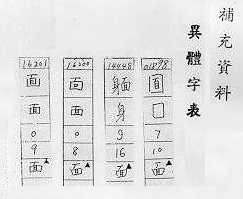 補充資料
異體字表
01898
囗
7
10
面▲
14448
身
9
16
面▲
16200
靣
面
0
8
面▲
16201
面
面
0
9
面▲